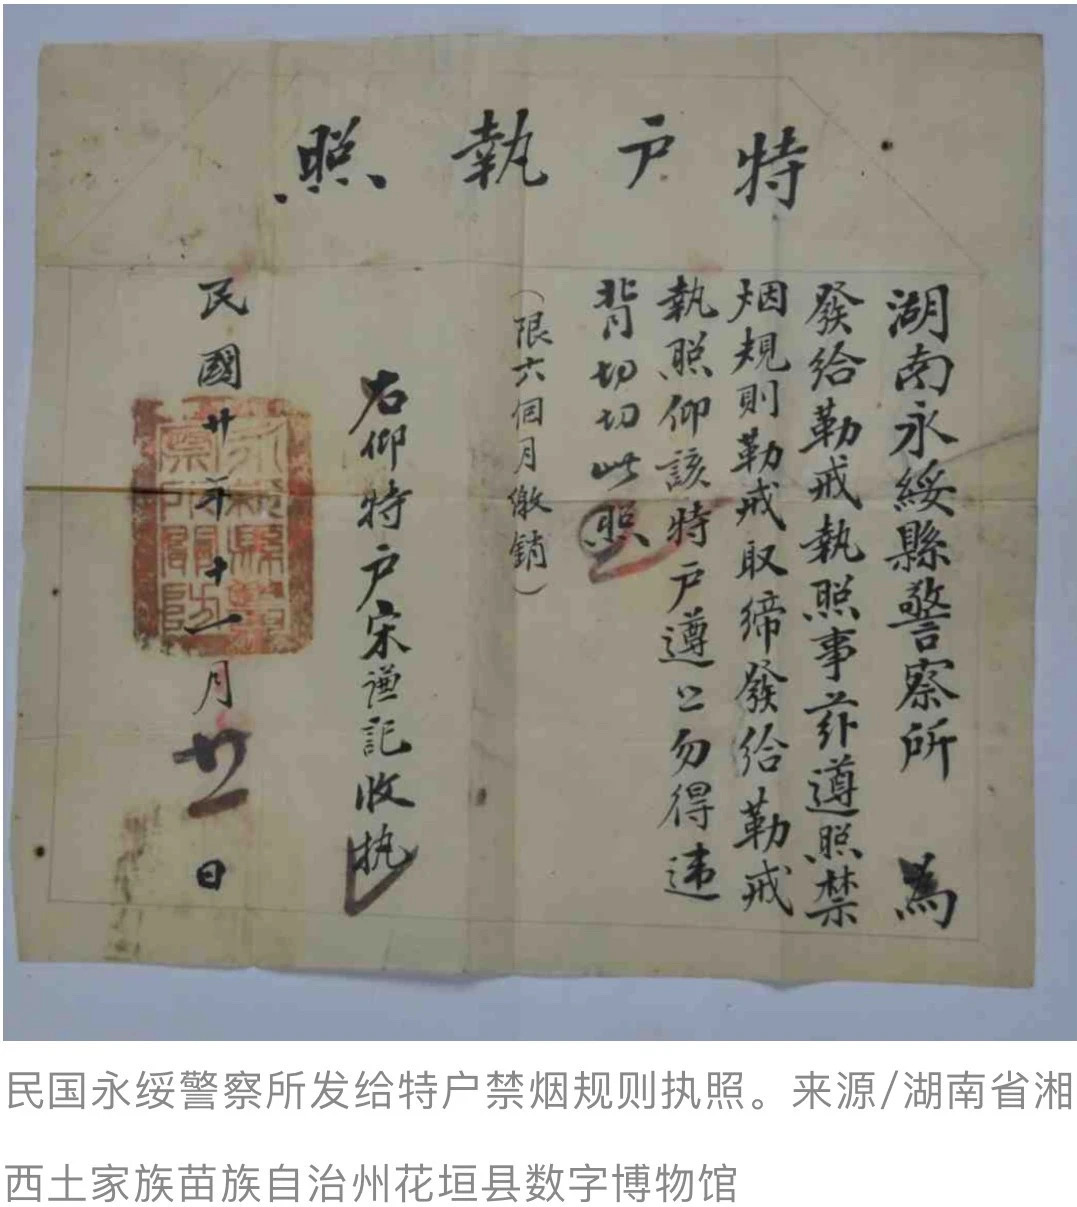 特户執照
湖南永綏縣警察所 為
發給勒戒執照事茲遵照禁
烟規則勒戒取締發給勒戒
執照仰該特户遵照勿得違
背切切此照
（限六個月繳銷）
右仰特户宋謹記收执
民國廿年十一月廿一日
民国永绥警察所发给特户禁烟规则执照。来源/湖南省湘
西土家族苗族自治州花垣县数字博物馆